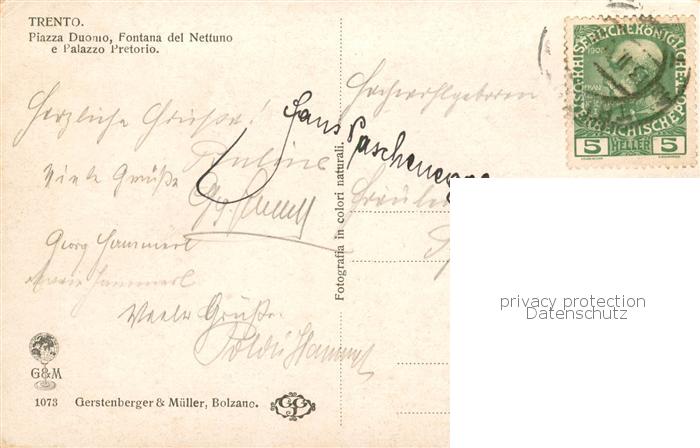 TRENTO.
Piazza Duomo, Fontana del Nettuno
e Palazzo Pretorio.
Herzliche Grüsse!
Hans Paschenegg
Viele Grüße
Georg Hammerl
Hammerl
Viele Grüße
Poldi Hammerl
G&M
1073 Gerstenberger & Müller, Bolzano.
Fotografia in colori naturali.
Hochwohlgeboren
Fräulein
KAISERLICHE KÖNIGLICHE
ÖSTERREICHISCHE POST
5 HELLER 5
privacy protection
Datenschutz